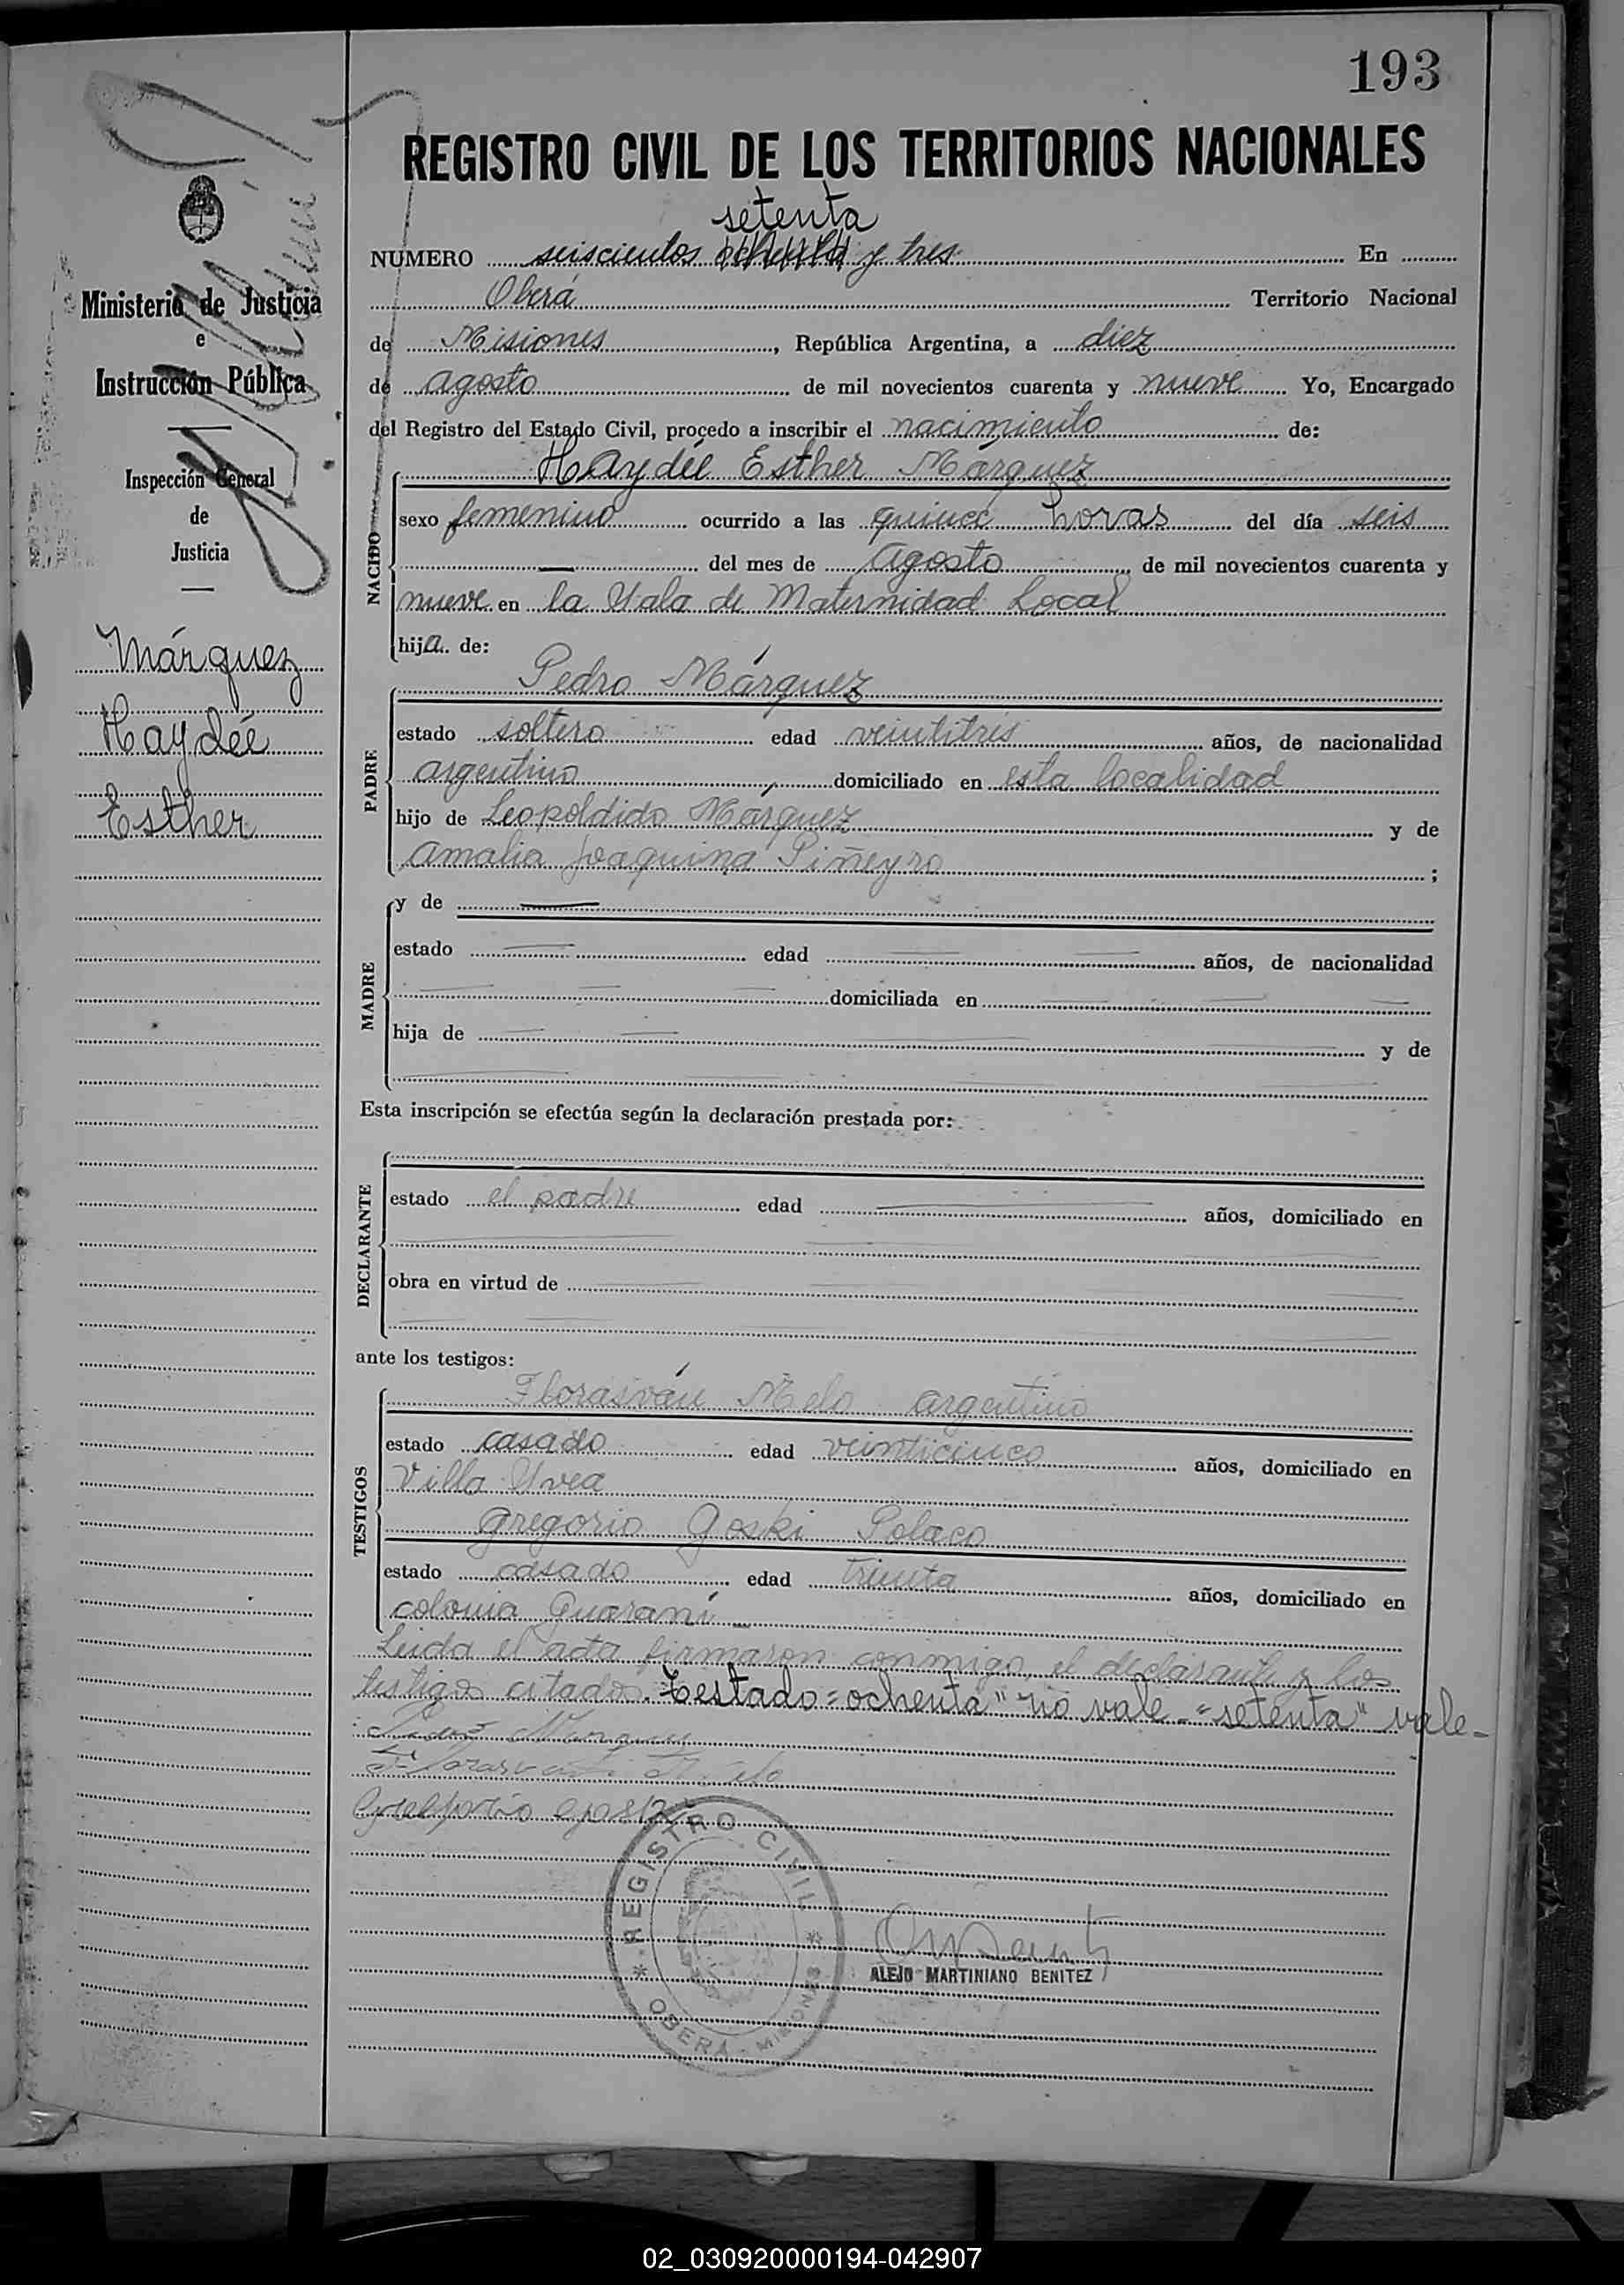 193
REGISTRO CIVIL DE LOS TERRITORIOS NACIONALES
Ministerio de Justicia
e
Instrucción Pública
Inspección General
de
Justicia
Márquez
Haydée
Esther
setenta
NUMERO seiscientos ochenta y tres En
Oberá Territorio Nacional
de Misiones, República Argentina, a diez
de agosto de mil novecientos cuarenta y nueve Yo, Encargado
del Registro del Estado Civil, procedo a inscribir el nacimiento de:
Haydée Esther Márquez
NACIDO
sexo femenino ocurrido a las quince horas del día seis
— del mes de Agosto de mil novecientos cuarenta y
nueve en la Sala de Maternidad Local
hija de:
Pedro Márquez
PADRE
estado soltero edad veintitrés años, de nacionalidad
argentino domiciliado en esta localidad
hijo de Leopoldido Márquez y de
Amalia Joaquina Piñeyro ;
MADRE
y de —
estado — edad — años, de nacionalidad
— domiciliada en —
hija de — y de
Esta inscripción se efectúa según la declaración prestada por:
DECLARANTE
estado el padre edad — años, domiciliado en
obra en virtud de —
ante los testigos:
TESTIGOS
Florasván Melo argentino
estado casado edad veinticinco años, domiciliado en
Villa Svea
Gregorio Goski Polaco
estado casado edad treinta años, domiciliado en
colonia Guaraní
Leida el acta firmaron conmigo, el declarante y los
testigos citados. Testado="ochenta" no vale-"setenta" vale-
Pedro Marquez
REGISTRO CIVIL
OBERÁ - MISIONES
ALEJO MARTINIANO BENITEZ
02_030920000194-042907